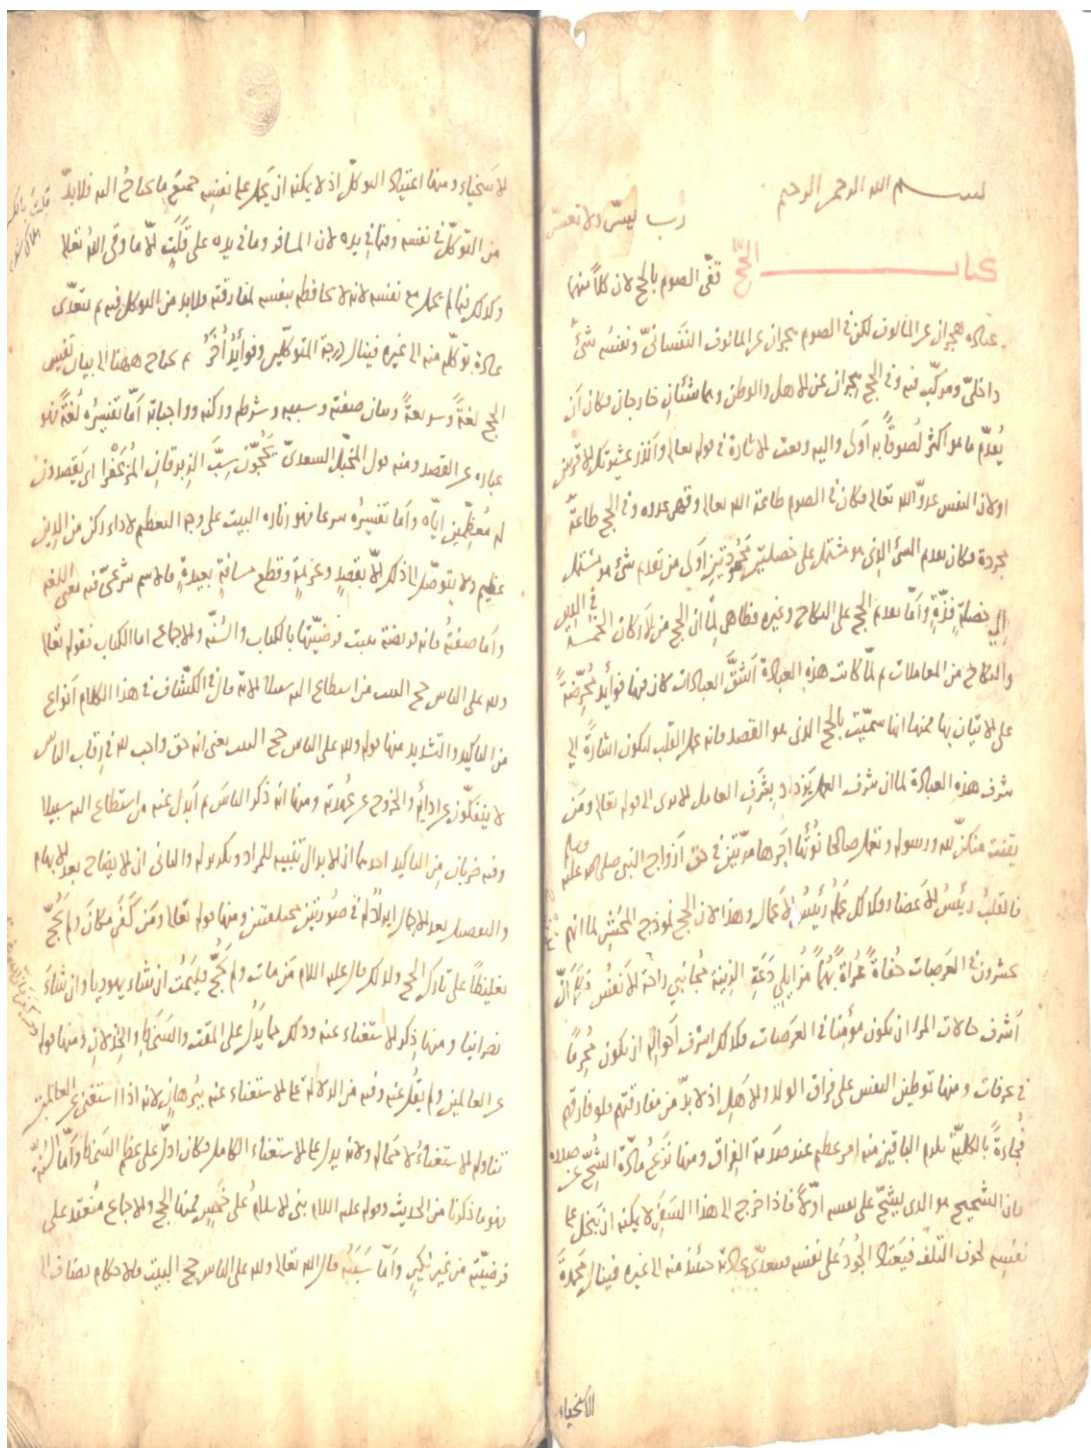 بسم الله الرحمن الرحيم
رب يسّر ولا تعسّر
كتاب الحجّ
قفّى الصوم بالحج لان كلاً منهما
عبادة هجران عن المالوف لكن في الصوم هجران عن المالوف النفسانىّ ونفسُه شئٌ
داخلىّ ومركّب فيه وفي الحج هجران عن الاهل والوطن وهما شيئانِ خارجان فكان اَن
يُقدّم ما هو اكثر لُصوقاً به اَولى واليه وقعت الاشارة في قوله تعالى وانذر عشيرتك الاقربين
اولان النفس عدوّ الله تعالى فكان في الصوم طاعة الله تعالى وقهر عدوه وفي الحج طاعةٌ
مجردة فكان تقديم الشئ الذي هو مشتمل على خصلتين محمودتين اَولى من تقديم شئ هو مشتمل
على خصلةٍ فذّةٍ واَمّا تقديم الحج على النكاح وغيره فظاهر لِمَا ان الحج من الاَركان الخمسة
في الدين
والنكاح من المعاملات ثم لمّا كانت هذه العبادة اَشَقَّ العبادات كان فيها فوائد مُحرِّضةً
على الاتيان بها فمنها انها سمّيت بالحج الذي هو القصد فانه عمل القلب ليكون اشارةً الى
شرف هذه العبادة لما ان شرف العمل يزداد بِشَرَفِ العامل الا يرى الى قوله تعالى ومَن
يقنت منكنّ لله ورسوله وتعمل صالحا نُؤتها اَجرها مرّتين في حق اَزواج النبي صلى الله عليه
وسلم
فالقلبُ رئيسُ الاَعضاء فكذلك عَمَلُه رَئيسُ الاَعمال وهذا لان الحج نموذج المَحْشرِ لما انهم
يحشرون في العَرصات حُفاةً عُراةً بُهْماً مُزَايِلِي دَعَةِ الزينة مُجانِبِي راحة الاَنفُس فكما اَنّ
اَشرف حالات المرء ان يكون مؤمِنًا في العرَصات فكذلك اشرف اَحوالِه ان يكون مُحرِمًا
في عرفات ومنها توطين النفس على فراق الولد والاَهلِ اذ لا بدّ من مفارقتهم فلو فارقهم
فُجاءةً بالكليّة يلزم الباقين منه امر عظيم عند صدمة الفِراق ومنها نَزعُ مادّة الشُّحّ عن صدره
فان الشحيح هو الذي يشحّ على نفسه اوّلاً فاذا خرج الى هذا السفَرِ لا يمكنه ان يَبخل على
نفسِه لخوف التَلف فيَعتادُ الجُودَ على نفسه فتتعدّى عادته حينئذ منه الى غيره فينال مَحْمِدَةَ
الاسخياء
الاَسخياء ومنها اعتيادُ التوكّل اذ لا يمكنه ان يَحمل على نفسِه جميعَ ما يحتاجُ اليه فلا بدّ
من التوكّل في نفسه وفيما في يده لان المسافر وما في يده على قَلَتٍ الّا ما وقى اللهُ تعالى
وكذلك فيما لم يحمله مع نفسه لانه لا يحافظه بنفسه لمفارقته فلا بد من التوكل فيه ثم تتعدّى
عادة توكّله منه الى غيره فينال درجة المتوكّلين وفوائدُ اُخَرُ ثم يحتاج ههنا الى بيان تفسير
الحج لغةً وشريعةً وبيان صفته وسببه وشرطه وركنه وواجباته اَمّا تفسيرُه لُغةً فهو
عبارة عن القصد ومنه قول المخبّل السعديّ يَحُجّون سِبَّ الزِبرقانِ المُزَعْفَرا اى يَقصدون
له مُعظِّمين ايّاه واَما تفسيرُه شرعا فهو زيارة البيت على وجه التعظيم لاداء ركن من الدين
عظيم ولا يتوصّل الى ذلك الّا بقصدٍ وعزيمةٍ وقطع مسافةٍ بعيدةٍ فالاسم شرعىّ فيه معنى اللغة
واَما صفتُه فانه فريضة ثبتت فرضيّتها بالكتاب والسُنّة والاجماع اما الكتاب فقوله تعالى
ولله على الناس حج البيت من استطاع اليه سبيلا الآية قال في الكشّاف في هذا الكلام اَنواع
من التاكيد والتشديد منها قوله ولله على الناس حج البيت يعنى انه حق واجب لله في رقاب الناس
لا ينفكّون عن ادائه والخروج عن عُهدته ومنها انه ذكر الناسَ ثم اَبدل عنه من استطاع اليه سبيلا
وفيه ضربان مِن التاكيد احدهما ان الابدال تثنيه للمراد وتكرير له والثاني ان الايضاح بعد الابهام
والتفصيل بعد الاِجمال ايرادٌ له في صُورتين مختلفتين ومنها قوله تعالى ومَن كفر مكانَ ولم يَحُجَّ
تغليظاً على تارك الحج ولذلك قال عليه السلام مَن مات ولم يَحُجّ فليَمُت ان شاء يهوديا وان شاءَ
نصرانيا ومنها ذِكر الاستغناء عنه وذلك مما يَدُلّ على المقت والسَخَطِ والخِذلانِ ومنها قوله
عن العالمين ولم يقُل عنه وفيه من الدلالة على الاستغناء عنه ببُرهانٍ لانه اذا استغنى عن العالمين
تناوله الاستغناءُ لا محالة ولانه يدل على الاستغناء الكامل فكان ادلّ على عظم السَخط واَمّا السُنّة
فهو ما ذكرنا من الحديث وقوله عليه السلام بنى الاسلامُ على خمسٍ فمنها الحج والاجماع مُنعقد على
فرضيّته من غير نكيرٍ واَمّا سَبَبُه قال الله تعالى ولله على الناس حج البيت فالاحكام يضاف الى